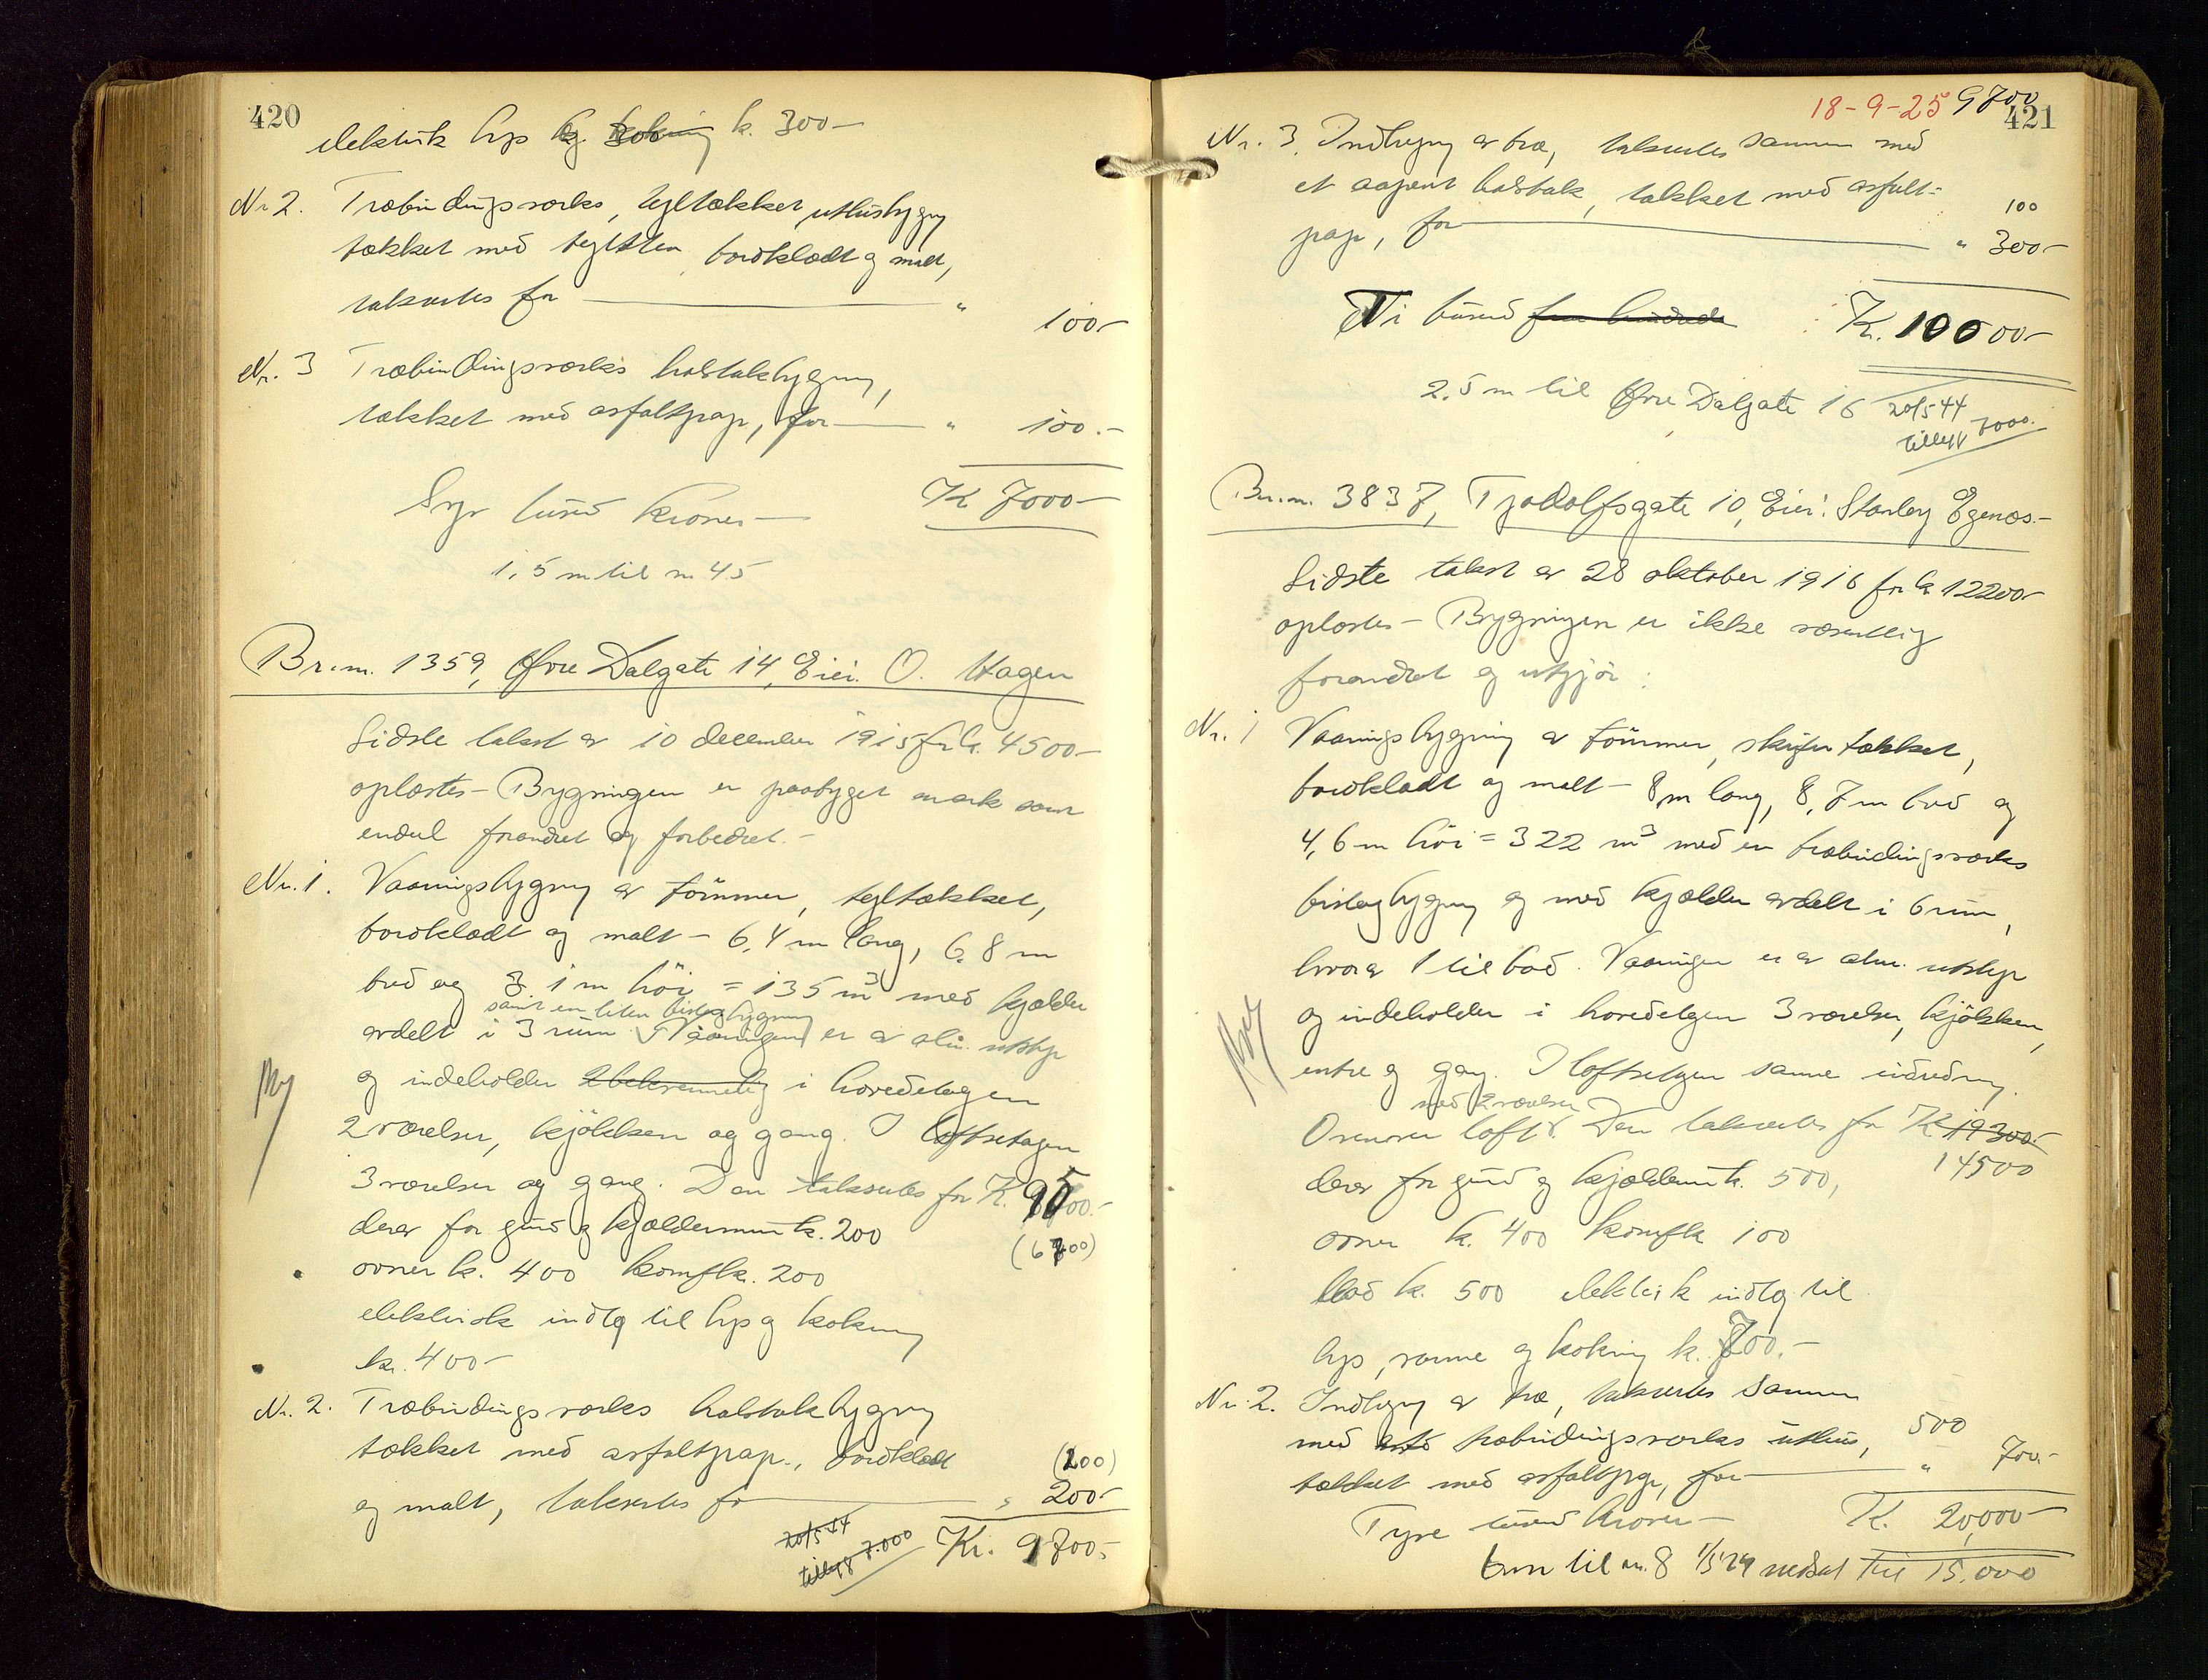 420
elektrisk lys og kokning k. 300-
Nr 2. Træbindingsværks, tegltækket uthusbygng
tækket med teglsten, bordklædt og malt,
taksertes for " 100-
Nr. 3 Træbindingsværks halvtakbygning,
tækket med asfaltpap, for " 100.-
Syv tusend kroner- K 7000-
1,5 m til nr 45
Br.nr. 1359, Øvre Dalgate 14, Eier: O. Hagen
Sidste takst av 10 december 1915 for k. 4500-
oplæstes- Bygningen er paabygget
endel forandret og forbedret.-
Nr. 1. Vaaningsbygng av tømmer, tegltækket,
bordklædt og malt - 6,4 m lang, 6,8 m
bred og 3,1 m høi = 135 m³ med kjælder
samt en liten bislagbygning
avdelt i 3 rum. Vaaningen er av alm. utstyr
og indeholder 2 bekvemmelig i hovedetagen
2 værelser, kjøkken og gang. I loftsetagen
3 værelser og gang. Den taksertes for K. 9500.-
derav for grund og kjældermur k. 200 (6700)
ovner k. 400 komf k. 200
elektrisk indlg til lys og kokning
k. 400-
Nr. 2. Træbindingsværks halvtakbygng
tækket med asfaltpap., bordklædt (200)
og malt, taksertes for " 200-
20/5 44
tillegg 7.000 Kr. 9700.-
18-9-25 9700
421
Nr. 3. Indhegng av træ, taksertes sammen med
et aapent halvtak, tækket med asfalt- 100
pap, for " 300-
Ti tusend fem hundrede K. 10000-
2,5 m til Øvre Dalgate 16 20/5 44
tillegg 7000.
Br.nr. 3837, Tjodolfsgate 10, Eier: Stanley Egenæs.-
Sidste takst av 28 oktober 1916 for k 12200-
oplæstes- Bygningen er ikke væsentlig
forandret og utgjør:
Nr. 1 Vaaningsbygning av tømmer, skifertækket,
bordklædt og malt - 8 m lang, 8,7 m bred og
4,6 m høi = 322 m³ med en træbindingsværks
bislagbygng og med kjælder avdelt i 6 rum,
hvorav 1 til bad. Vaaningen er av alm. utstyr
og indeholder i hovedetagen 3 værelser, kjøkken,
entre og gang. I loftsetgen samme indredning.
med 2 værelser
Ovenover loft. Den taksertes for K 19300.-
derav for grund og kjældermur k. 500, 14500
ovner k. 400 komf k 100
bad k. 500 elektrisk indlg til
lys, varme og kokning k. 700.-
Nr. 2. Indhegng av træ, taksertes sammen
med træbindingsværks uthus, 500
tækket med asfaltpap, for " 700.-
Tyve tusend kroner- K. 20,000-
6 m til nr. 8 1/5 29 nedsat til 15.000